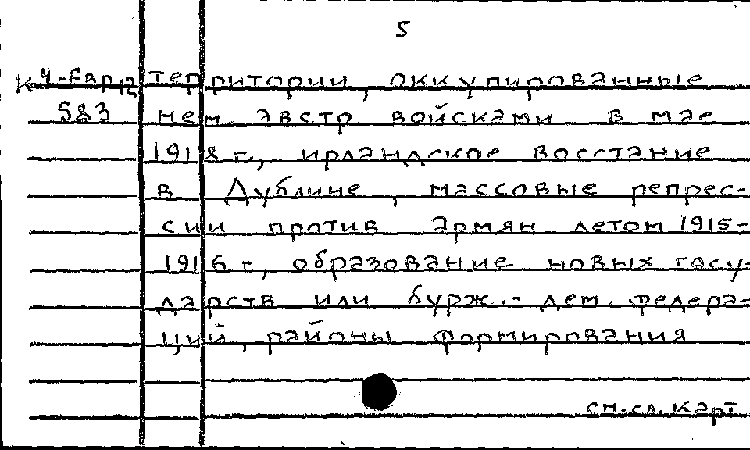 5
К Ч-Евр12 территории, оккупированные
583 нем. австр войсками в мае
1918 г., ирландское восстание
в Дублине, массовые репрес-
сии против армян летом 1915-
1916 г., образование новых госу-
дарств или бурж.-дем. федера-
ций, районы формирования
см.сл.карт